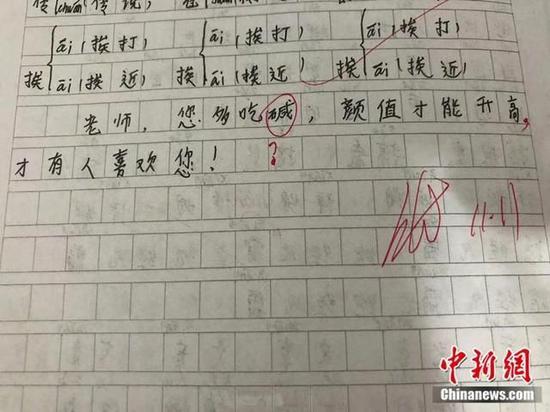 传(chuán)(传说)
āi(挨打) āi(挨打) āi(挨打)
挨 挨 挨
āi(挨近) āi(挨近) āi(挨近)
老师，您多吃碱，颜值才能升高，
才有人喜欢您！ ?
11.11
中新网
Chinanews.com